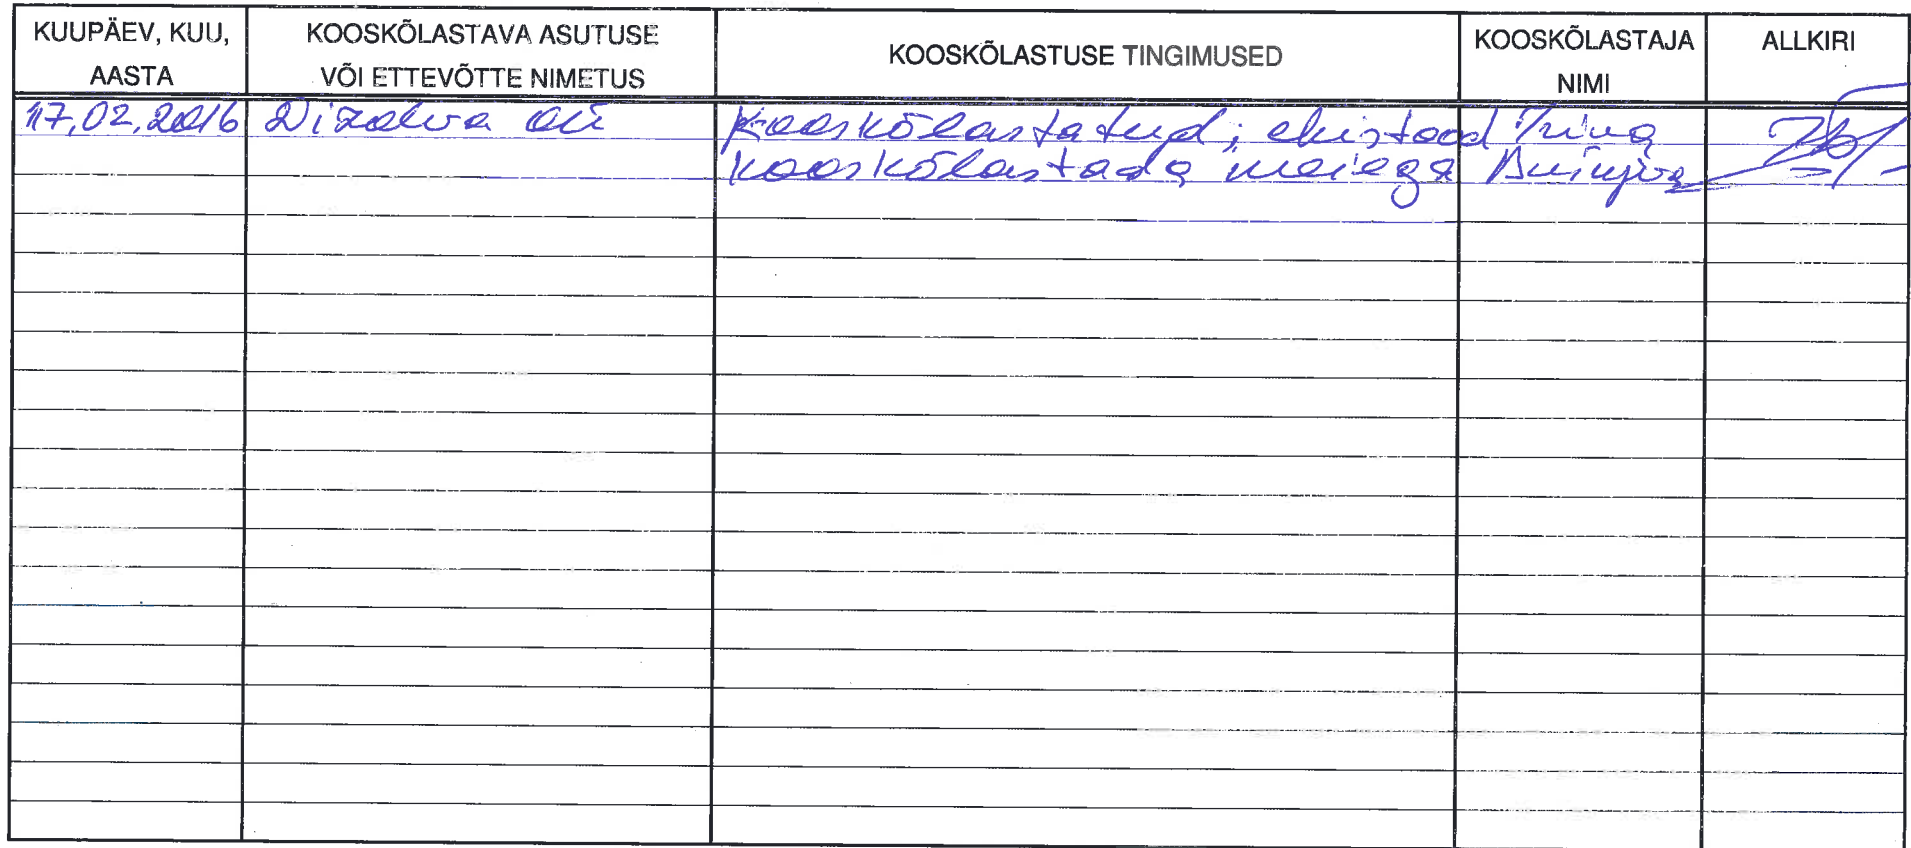 KUUPÄEV, KUU,
AASTA
KOOSKÕLASTAVA ASUTUSE
VÕI ETTEVÕTTE NIMETUS
KOOSKÕLASTUSE TINGIMUSED
KOOSKÕLASTAJA
NIMI
ALLKIRI
17.02.2016 OÜ Kooskõlastatud; ehistööd
kooskõlastada meiega